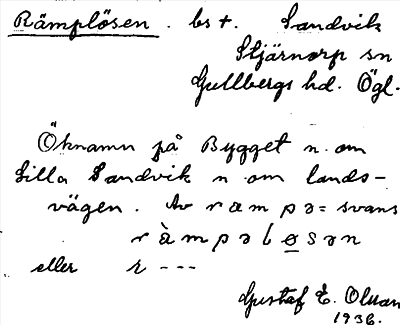 Rämplösen. bst. Sandvik
Stjärnorp sn
Gullbergs hd. Ögl.
Öknamn på Bygget n. om
Lilla Sandvik n om lands-
vägen. Av rampə = svans
ràmpəløsən
eller r ---
Gustaf E. Olsson
1936.